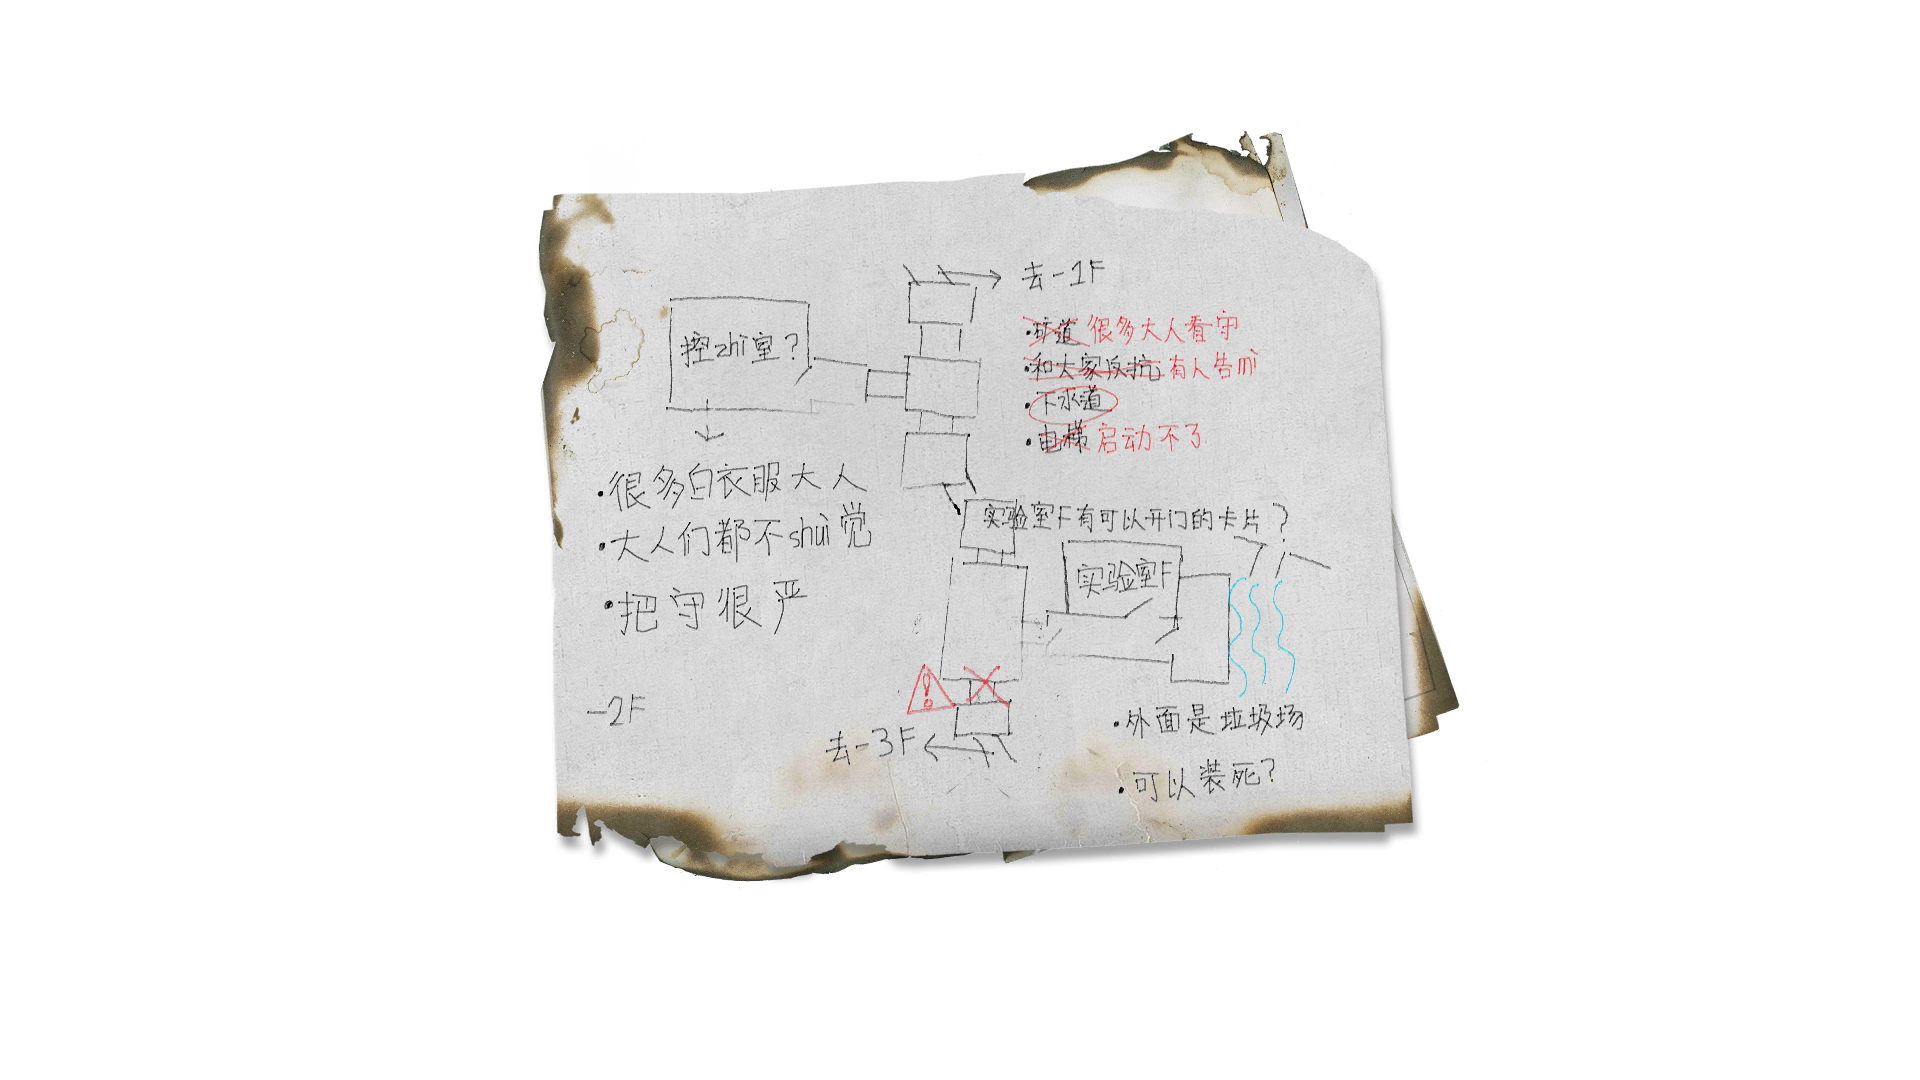 去-1F
·矿道 很多大人看守
·和大家反抗 有人告mì
·下水道
·电梯 启动不了
控zhì室？
·很多白衣服大人
·大人们都不shuì觉
·把守很严
实验室F有可以开门的卡片？
实验室F
-2F
去-3F
·外面是垃圾场
·可以装死？